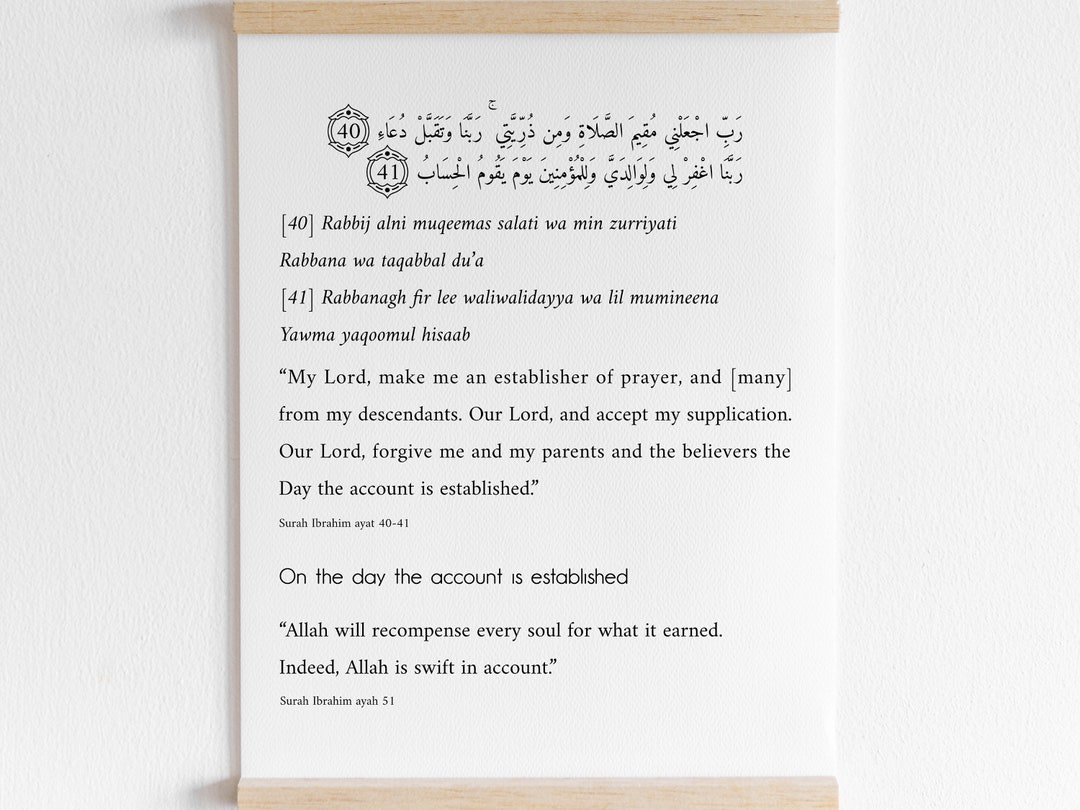 رَبِّ اجْعَلْنِي مُقِيمَ الصَّلَاةِ وَمِن ذُرِّيَّتِي ۚ رَبَّنَا وَتَقَبَّلْ دُعَاءِ 40
رَبَّنَا اغْفِرْ لِي وَلِوَالِدَيَّ وَلِلْمُؤْمِنِينَ يَوْمَ يَقُومُ الْحِسَابُ 41
[40] Rabbij alni muqeemas salati wa min zurriyati
Rabbana wa taqabbal du’a
[41] Rabbanagh fir lee waliwalidayya wa lil mumineena
Yawma yaqoomul hisaab
“My Lord, make me an establisher of prayer, and [many]
from my descendants. Our Lord, and accept my supplication.
Our Lord, forgive me and my parents and the believers the
Day the account is established.”
Surah Ibrahim ayat 40-41
On the day the account is established
“Allah will recompense every soul for what it earned.
Indeed, Allah is swift in account.”
Surah Ibrahim ayah 51